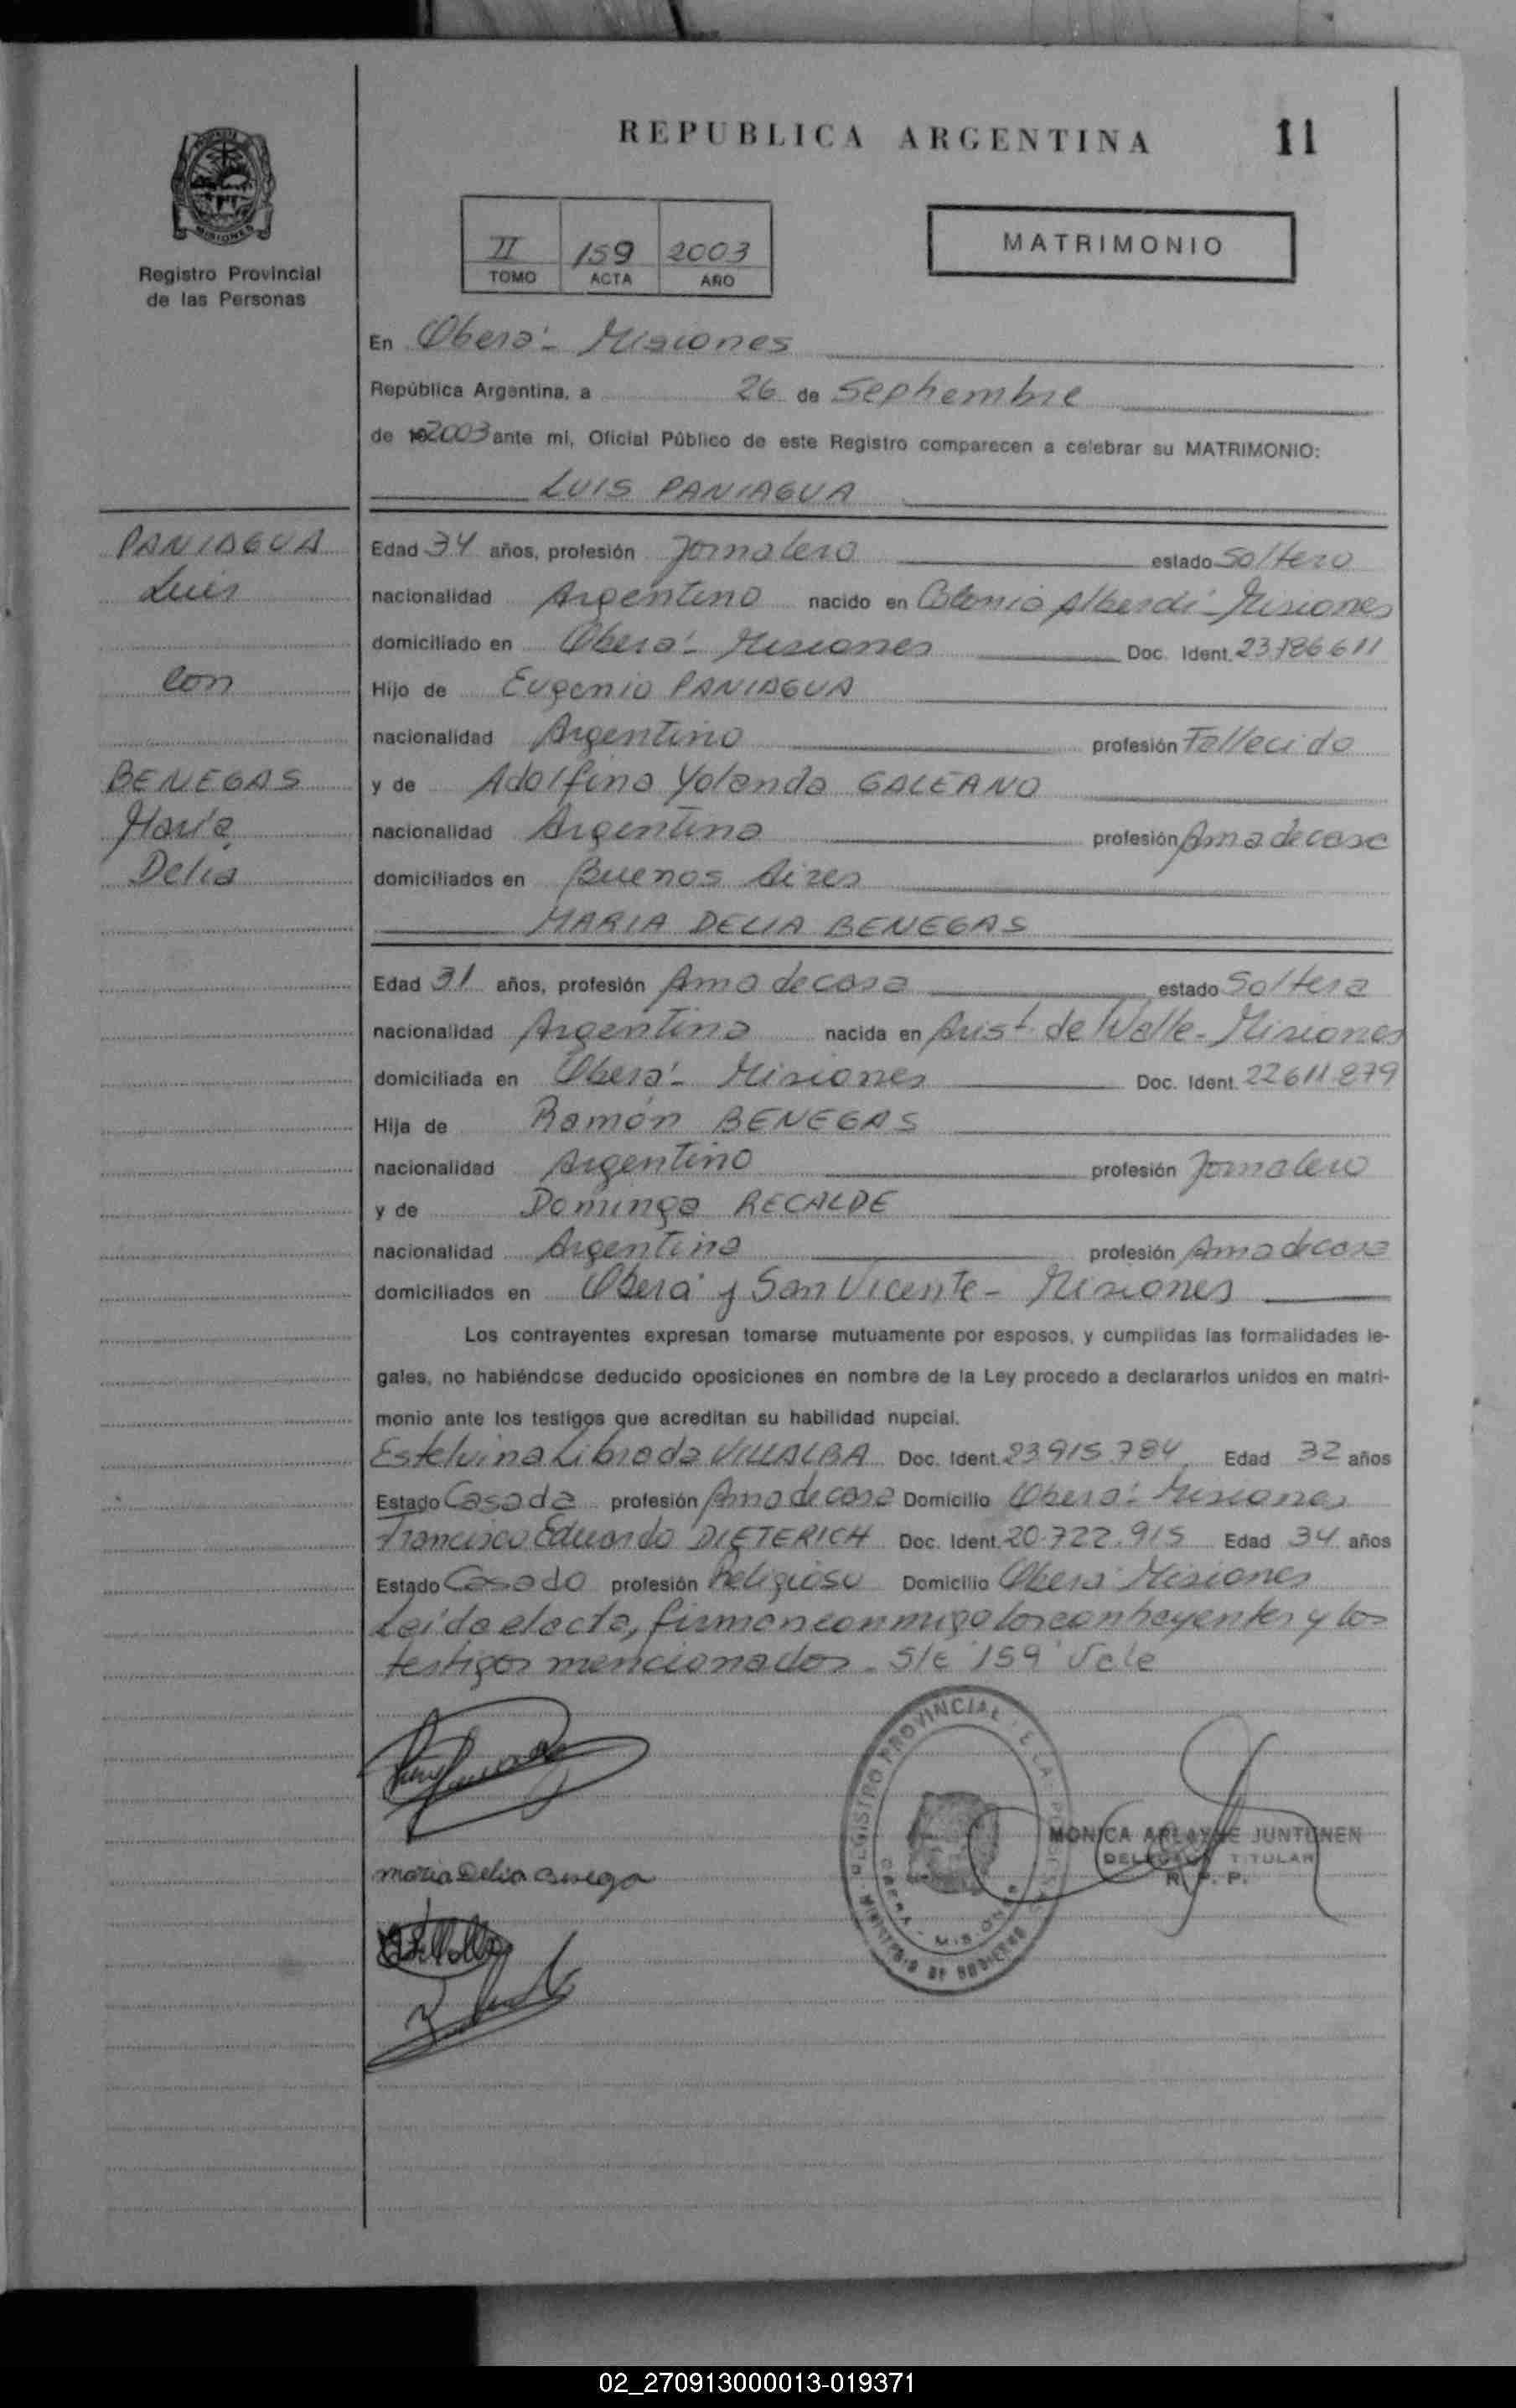 REPUBLICA ARGENTINA 11
MISIONES
Registro Provincial
de las Personas
II 159 2003
TOMO ACTA AÑO
MATRIMONIO
En Oberá - Misiones
República Argentina, a 26 de Septiembre
de 2003 ante mi, Oficial Público de este Registro comparecen a celebrar su MATRIMONIO:
LUIS PANIAGUA
PANIAGUA
Luis
con
BENEGAS
María
Delia
Edad 34 años, profesión Jornalero estado Soltero
nacionalidad Argentino nacido en Colonia Alberdi - Misiones
domiciliado en Oberá - Misiones Doc. Ident. 23.186.611
Hijo de Eugenio PANIAGUA
nacionalidad Argentino profesión Fallecido
y de Adolfina Yolanda GALEANO
nacionalidad Argentina profesión Ama de casa
domiciliados en Buenos Aires
MARIA DELIA BENEGAS
Edad 31 años, profesión Ama de casa estado Soltera
nacionalidad Argentina nacida en Arist. de Valle - Misiones
domiciliada en Oberá - Misiones Doc. Ident. 22.611.879
Hija de Ramón BENEGAS
nacionalidad Argentino profesión Jornalero
y de Dominga RECALDE
nacionalidad Argentina profesión Ama de casa
domiciliados en Oberá y San Vicente - Misiones
Los contrayentes expresan tomarse mutuamente por esposos, y cumplidas las formalidades le-
gales, no habiéndose deducido oposiciones en nombre de la Ley procedo a declararlos unidos en matri-
monio ante los testigos que acreditan su habilidad nupcial.
Estelvina Librada VILLALBA Doc. Ident. 23.915.784 Edad 32 años
Estado Casada profesión Ama de casa Domicilio Oberá - Misiones
Francisco Eduardo DIETERICH Doc. Ident. 20.722.915 Edad 34 años
Estado Casado profesión Religioso Domicilio Oberá Misiones
Leída el acta, firman conmigo los contrayentes y los
testigos mencionados. S/E "159" Vale
REGISTRO PROVINCIAL DE LAS PERSONAS
OBERA - MISIONES
MINISTERIO DE GOBIERNO
MONICA ARLAYNE JUNTUNEN
DELEGADA TITULAR
R. P. P.
maria Delia Benega
02_270913000013-019371